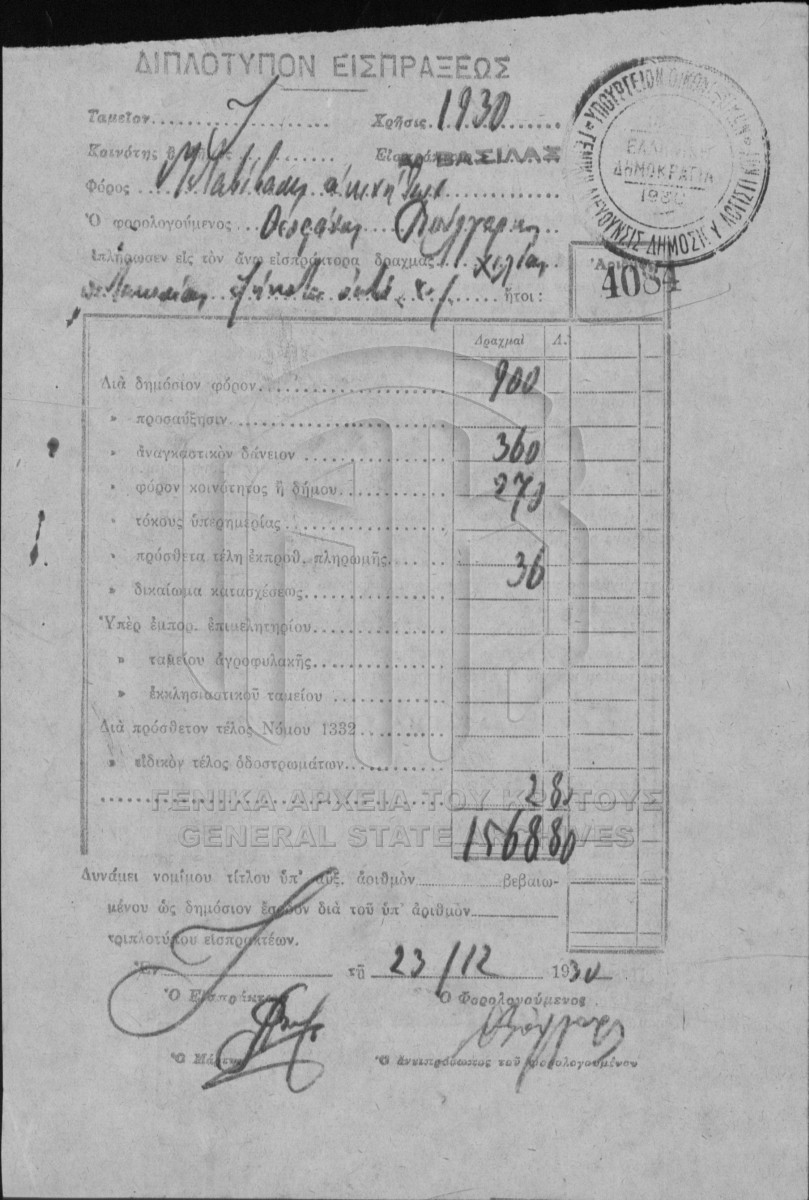 ΔΙΠΛΟΤΥΠΟΝ ΕΙΣΠΡΑΞΕΩΣ
ΥΠΟΥΡΓΕΙΟΝ ΟΙΚΟΝΟΜΙΚΩΝ
ΕΛΛΗΝΙΚΗ
ΔΗΜΟΚΡΑΤΙΑ
1930
Ταμεῖον Χρῆσις 1930
Κοινότης ΒΑΣΙΛΑΣ
Φόρος Μεταβίβασης ἀκινήτων
Ὁ φορολογούμενος Θεοφάνης
ἐπλήρωσεν εἰς τὸν ἄνω εἰσπράκτορα δραχμάς χιλίας
πεντακοσίας ἑξήκοντα ὀκτὼ ἤτοι :
4084
Δραχμαὶ Λ.
Διὰ δημόσιον φόρον 900
» προσαύξησιν
» ἀναγκαστικὸν δάνειον 360
» φόρον κοινότητος ἢ δήμου 270
» τόκους ὑπερημερίας
» πρόσθετα τέλη ἐκπροθ. πληρωμῆς 36
» δικαίωμα κατασχέσεως
Ὑπὲρ ἐμπορ. ἐπιμελητηρίου
» ταμείου ἀγροφυλακῆς
» ἐκκλησιαστικοῦ ταμείου
Διὰ πρόσθετον τέλος Νόμου 1332
» εἰδικὸν τέλος ὁδοστρωμάτων
2 80
ΓΕΝΙΚΑ ΑΡΧΕΙΑ ΤΟΥ ΚΡΑΤΟΥΣ
GENERAL STATE ARCHIVES
1568 80
Δυνάμει νομίμου τίτλου ὑπ' αὐξ. ἀριθμὸν βεβαιω-
μένου ὡς δημόσιον ἔσοδον διὰ τοῦ ὑπ' ἀριθμὸν
τριπλοτύπου εἰσπρακτέων.
Ἐν τῇ 23/12 1930
Ὁ Εἰσπράκτωρ Ὁ Φορολογούμενος
Ὁ Μάρτυς Ὁ ἀντιπρόσωπος τοῦ φορολογουμένου